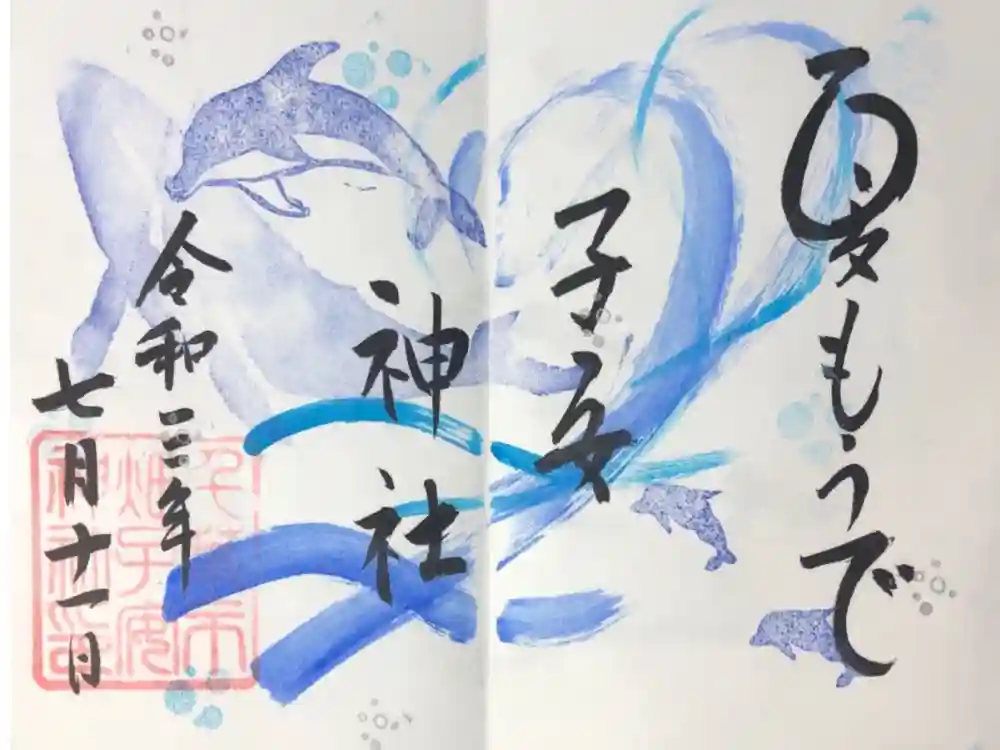 夏もうで
子安
神社
令和三年
七月十一日